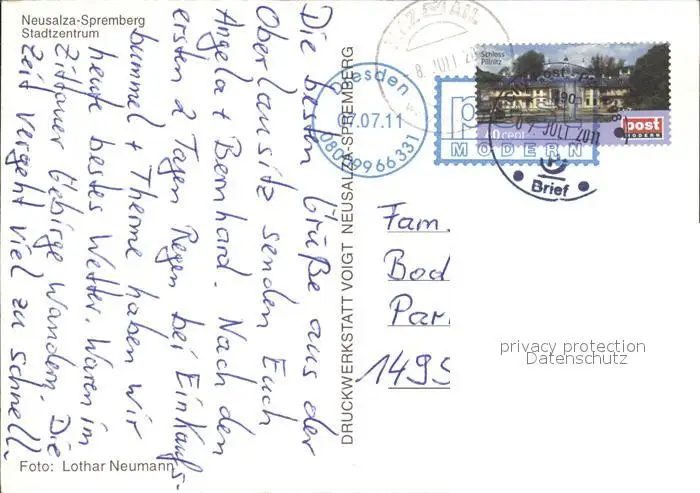 Neusalza-Spremberg
Stadtzentrum
Die besten Grüße aus der
Oberlausitz senden Euch
Angela + Bernhard. Nach den
ersten 2 Tagen Regen bei Einkaufs-
bummel + Therme haben wir
heute bestes Wetter. Waren im
Zittauer Gebirge wandern. Die
Zeit vergeht viel zu schnell.
Foto: Lothar Neumann
DRUCKWERKSTATT VOIGT NEUSALZA-SPREMBERG
BZ.
8. JULI
Dresden
07.07.11
08099966331
MODERN
Schloss
Pillnitz
07. JULI 2011
Brief
post
MODERN
Fam.
Bod
Par
1495
privacy protection
Datenschutz